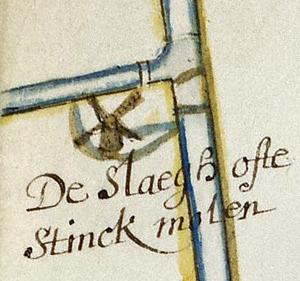 De Slaegh ofte
Stinck molen